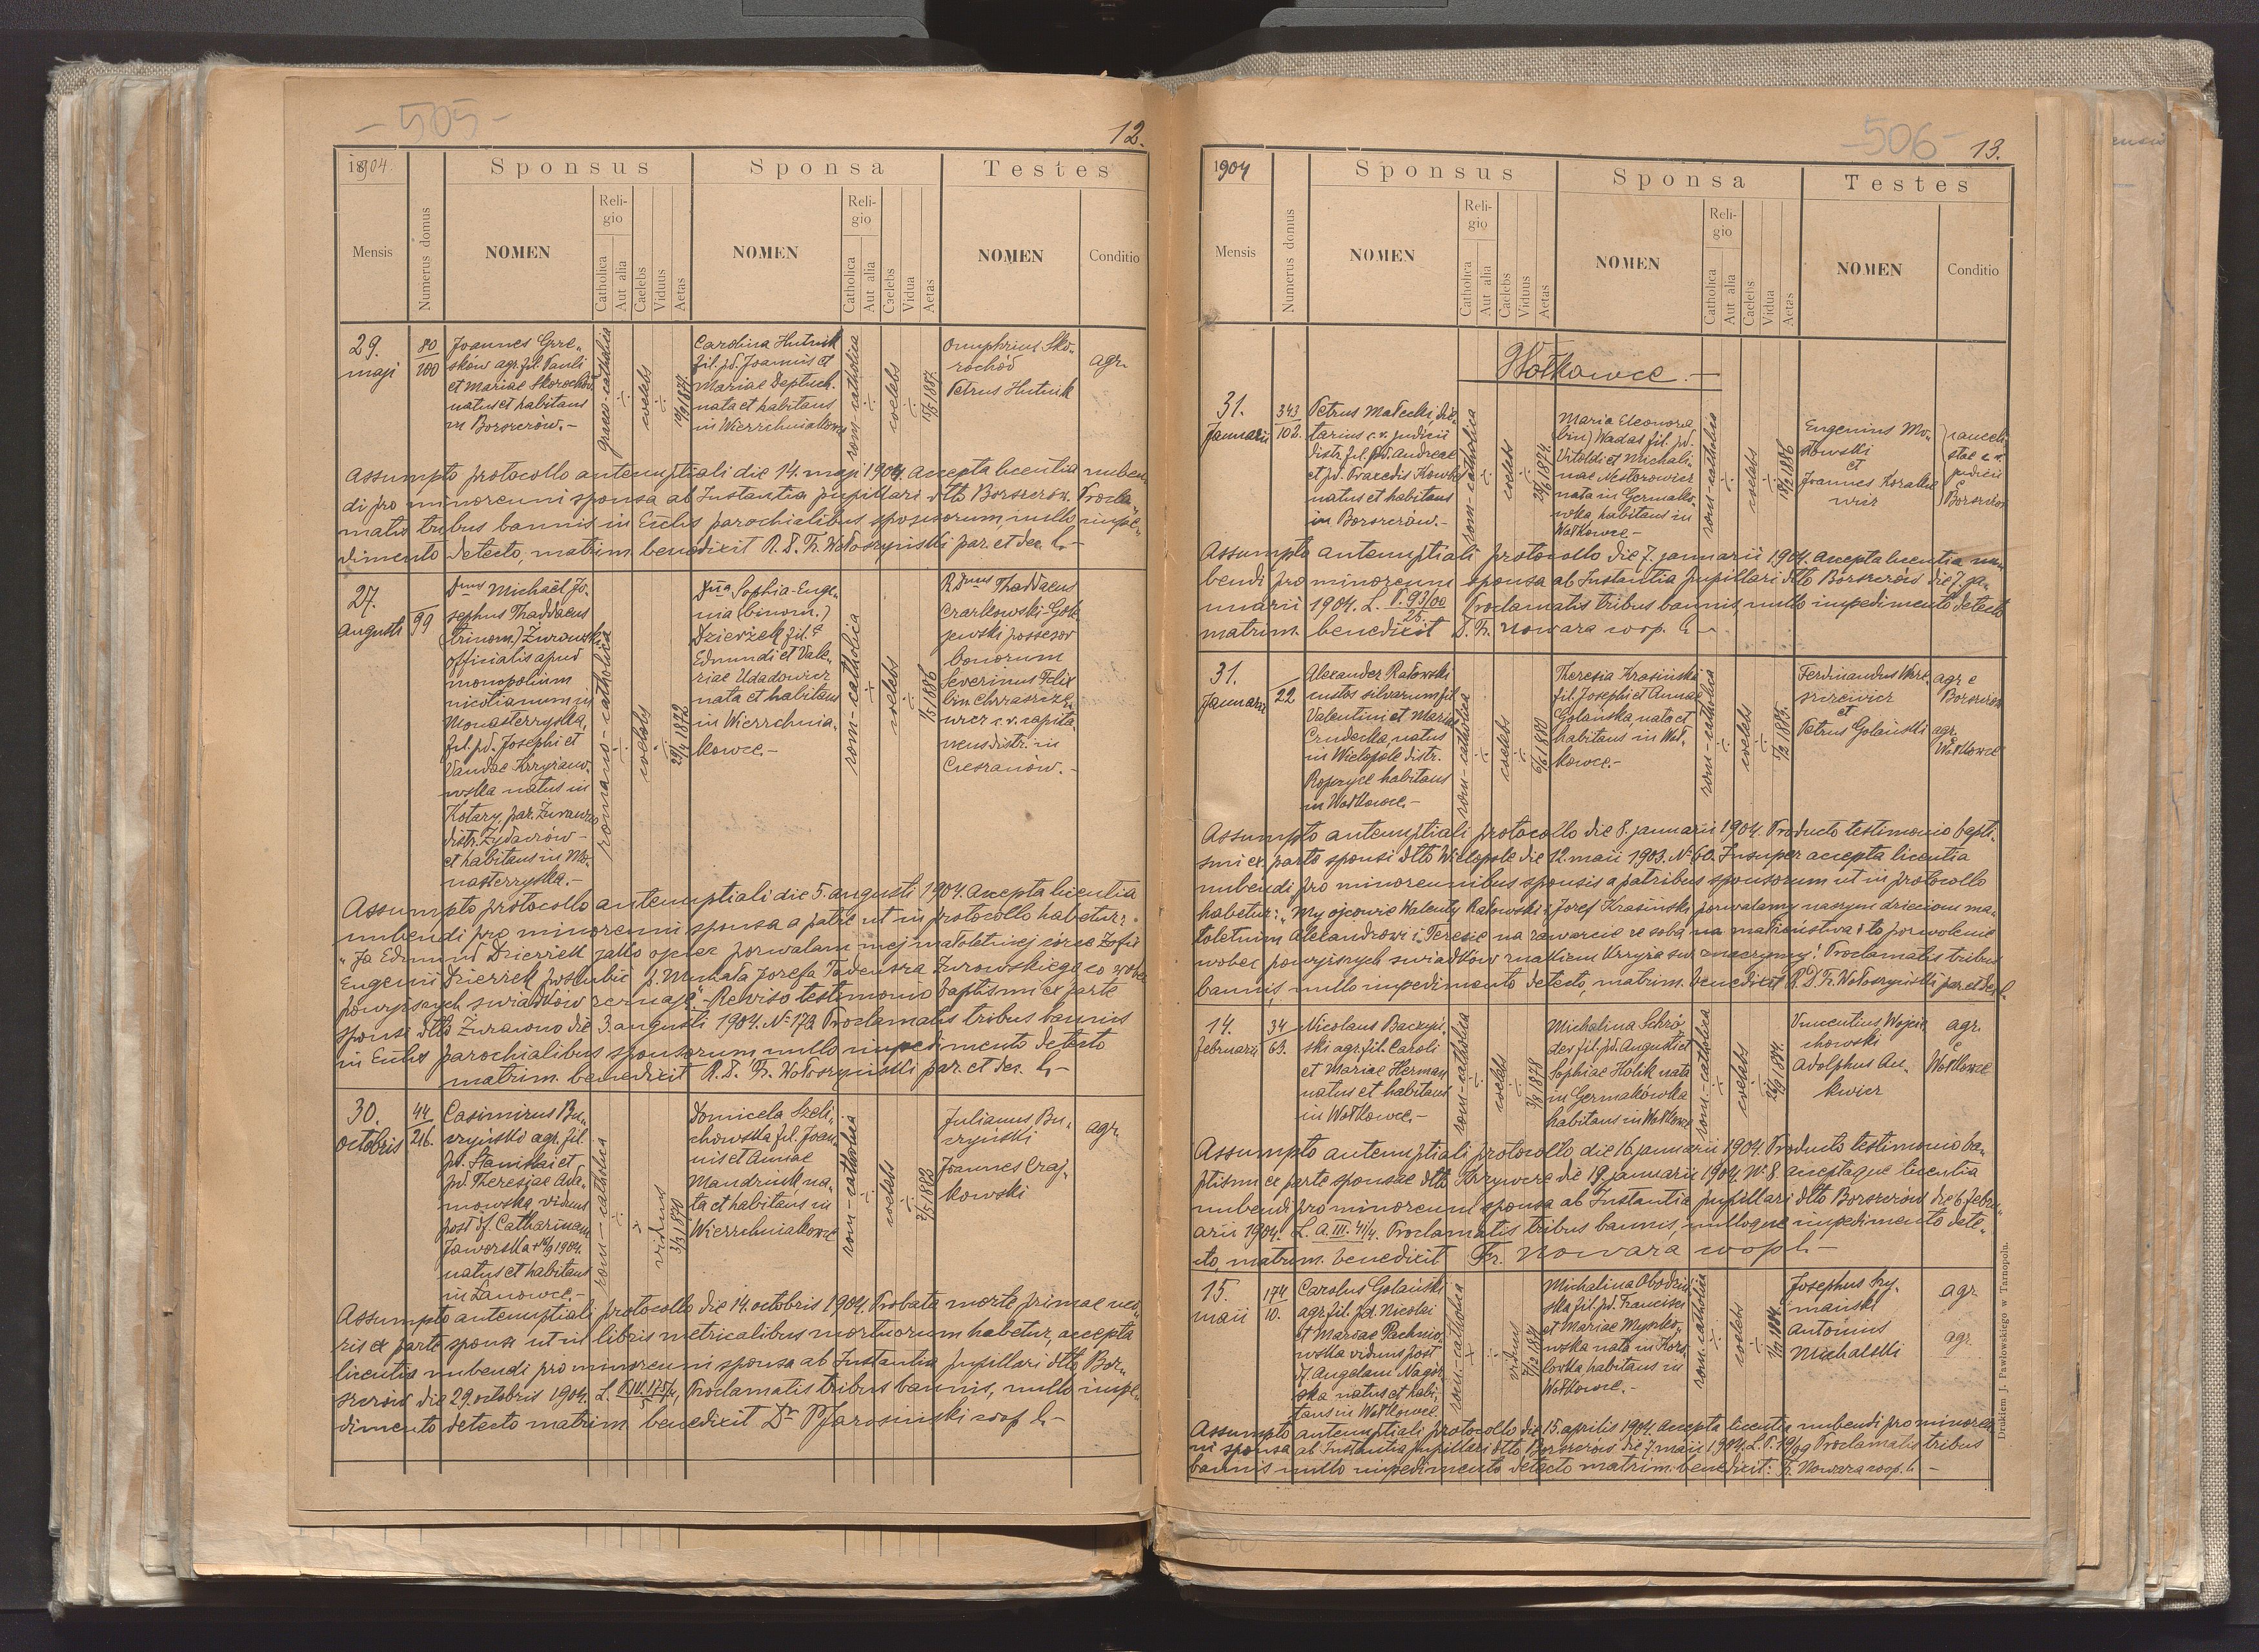 - 505 -
12.
1904.
Sponsus
Sponsa
Testes
Mensis
Numerus domus
NOMEN
Religio
Catholica
Aut alia
Caelebs
Viduus
Aetas
NOMEN
Religio
Catholica
Aut alia
Caelebs
Vidua
Aetas
NOMEN
Conditio
29.
maji
80
100
Joannes Gre-
sków agr. fil. Pauli
et Mariae Skorochód
natus et habitans
in Borszczów.-
graeco-catholica
coelebs
Carolina Hutnik
fil. pd. Joannis et
Mariae Depluch.
nata et habitans
in Wierzchniakowce
rom-catholica
coelebs
Onuphrius Sko-
rochód
Petrus Hutnik
agr.
Assumpto protocollo antenuptiali die 14. maji 1904. Accepta licentia nuben-
di pro minorenni sponsa ab Instantia pupillari dtto Borszczów. Procla-
matis tribus bannis in Ecclis parochialibus sponsorum, nullo impe-
dimento detecto, matrim. benedixit R. D. Fr. Wołoszyński par. et dec. l.-
27.
Augusti
99
Dnus Michaël Jo-
sephus Thaddaeus
(trinom.) Żurowski
officialis apud
monopolium
nicotianum in
Monasterzyska,
fil. pd. Josephi et
Vandae Krzyżano-
wska natus in
Kotary, par. Żurawno
distr. Żydaczów -
et habitans in Mo-
nasterzyska.-
romano-catholica
coelebs
Dna Sophia-Euge-
nia (binom.)
Dzierżek fil.
Edmundi et Vale-
riae Udadowicz
nata et habitans
in Wierzchnia-
kowce.-
rom-catholica
coelebs
1/5 1886
R Dnus Thaddaeus
Czarkowski-Gole-
jewski possesor
bonorum
Severinus Felix
bin. Chrząszcze-
wicz c.r. capita-
neus distr. in
Cieszanów.-
Assumpto protocollo antenuptiali die 5. augusti 1904. Accepta licentia
nubendi pro minorenni sponsa a patre ut in protocollo habetur:
"Ja Edmund Dzierżek jako ojciec pozwalam mej małoletniej córce Zofii
Eugenii Dzierżek poslubić p. Michała Józefa Tadeusza Żurowskiego co wobec
powyższych świadków zeznaję."-Reviso testimonio baptismi ex parte
sponsi dtto Żurawno die 3. augusti 1904. No 172 Proclamatis tribus bannis
in Ecclis parochialibus sponsorum nullo impedimento detecto
matrim. benedixit R. D. Fr. Wołoszyński par. et dec. l.-
30.
Octobris
44
216.
Casimirus Bu-
czyński agr. fil.
pd. Stanislai et
pd. Theresiae Ada-
mowska viduus
post df Catharinam
Jaworska + 14/9 1904.
natus et habitans
in Łanowce.-
rom-catholica
viduus
3/3 1870
Domicela Szeli-
chowska fil. Joan-
nis et Annae
Mandziuk na-
ta et habitans in
Wierzchniakowce
rom-catholica
coelebs
7/5 1883
Julianus Bu-
czyński
Joannes Czaj-
kowski
agr.
Assumpto antenuptiali protocollo die 14. octobris 1904. Probata morte primae uxo-
ris ex parte sponsi ut in libris metricalibus mortuorum habetur, accepta
licentia nubendi pro minorenni sponsa ab Instantia pupillari dtto Bor-
szczów die 29. octobris 1904. Proclamatis tribus bannis, nullo impe-
dimento detecto matrim. benedixit Dr PJarosiński coop. l.-
- 506 -
13.
1904
Sponsus
Sponsa
Testes
Mensis
Numerus domus
NOMEN
Religio
Catholica
Aut alia
Caelebs
Viduus
Aetas
NOMEN
Religio
Catholica
Aut alia
Caelebs
Vidua
Aetas
NOMEN
Conditio
Wołkowce.-
31.
Januarii
343
102.
Petrus Małecki, die-
tarius c.r. judicii
distr. fil. pd. Andreae
et pd. Praxedis Kowba
natus et habitans
in Borszczów.-
rom-catholica
coelebs
29/6 1874
Maria Eleonora
(bin) Wadas fil. pd.
Vitoldi et Michali-
nae Nestorowicz
nata in Germakó-
wka, habitans in
Wołkowce.-
rom-catholica
coelebs
18/2 1886
Eugenius Mo-
kowski
et
Joannes Koralle-
wicz
cancelli-
stae c.r.
judicii
Borszczów
Assumpto antenuptiali protocollo die 7. januarii 1904. Accepta licentia nu-
bendi pro minorenni sponsa ab Instantia pupillari dtto Borszczów die 7. ja-
nuarii 1904. L. P. 93/00
25. Proclamatis tribus bannis, nullo impedimento detecto
matrim. benedixit D. Fr. Nowara coop. l.-
31.
Januarii
22
Alexander Rałowski
custos silvarum fil.
Valentini et Mariae
Czudecka, natus
in Wielopole distr.
Ropczyce habitans
in Wołkowce.-
rom-catholica
coelebs
6/6 1880
Theresia Krasińska
fil. Josephi et Annae
Golańska, nata et
habitans in Woł-
kowce.-
rom-catholica
coelebs
5/2 1885.
Ferdinandus Were-
szczewicz
et
Petrus Golański
agr. e
Borszczów
agr. e
Wołkowce
Assumpto antenuptiali protocollo die 8. januarii 1904. Producto testimonio bapti-
smi ex parte sponsi dtto Wielopole die 12. maii 1903. No 60. Insuper accepta licentia
nubendi pro minorennibus sponsis a patribus sponsorum ut in protocollo
habetur: "My ojcowie Walenty Rałowski i Józef Krasiński pozwalamy naszym dzieciom ma-
łoletnim Alexandrowi i Teresie na zawarcie ze sobą małżeństwa i to pozwolenie
wobec powyższych świadków znakiem krzyża św. znaczymy." Proclamatis tribus
bannis, nullo impedimento detecto, matrim. benedixit R. D. Fr. Wołoszyński par. et dec. l.
14.
februarii
34
63.
Nicolaus Baczyń-
ski agr. fil. Caroli
et Mariae Herman
natus et habitans
in Wołkowce.-
rom-catholica
coelebs
7/8 1878
Michalina Schrö-
der fil. pd. Augusti et
Sophiae Holik nata
in Germakówka
habitans in Wołkowce
rom-catholica
coelebs
Vincentius Wojcie-
chowski
Adolphus An-
kwicz
agr.
e
Wołkowce
Assumpto antenuptiali protocollo die 16. januarii 1904. Producto testimonio ba-
ptismi ex parte sponsae dtto Krzywcze die 19. januarii 1904. No 8. acceptaque licentia
nubendi pro minorenni sponsa ab Instantia pupillari dtto Borszczów die 6. febru-
arii 1904. L. A. III. 41/4. Proclamatis tribus bannis, nulloque impedimento dete-
cto, matrim. benedixit Fr. Nowara coop. l.-
15.
maii
174
10.
Carolus Golański
agr. fil. pd. Nicolai
et Mariae Pachnio-
wska viduus post
df. Angelam Nagór-
ska natus et habi-
tans in Wołkowce.
rom-catholica
viduus
Michalina Obodziń-
ska fil. pd. Francisci
et Mariae Myszko-
wska nata in Koro-
lówka habitans in
Wołkowce.-
rom-catholica
coelebs
Josephus Szy-
mański
Antonius
Michalski
agr.
agr.
Assumpto antenuptiali protocollo die 15. aprilis 1904. Accepta licentia nubendi pro minoren-
ni sponsa ab Instantia pupillari dtto Borszczów die 7. maii 1904. L. P. 19/99 Proclamatis tribus
bannis nullo impedimento detecto matrim. benedixit: Fr. Nowara coop. l.-
Drukiem J. Pawłowskiego w Tarnopolu.